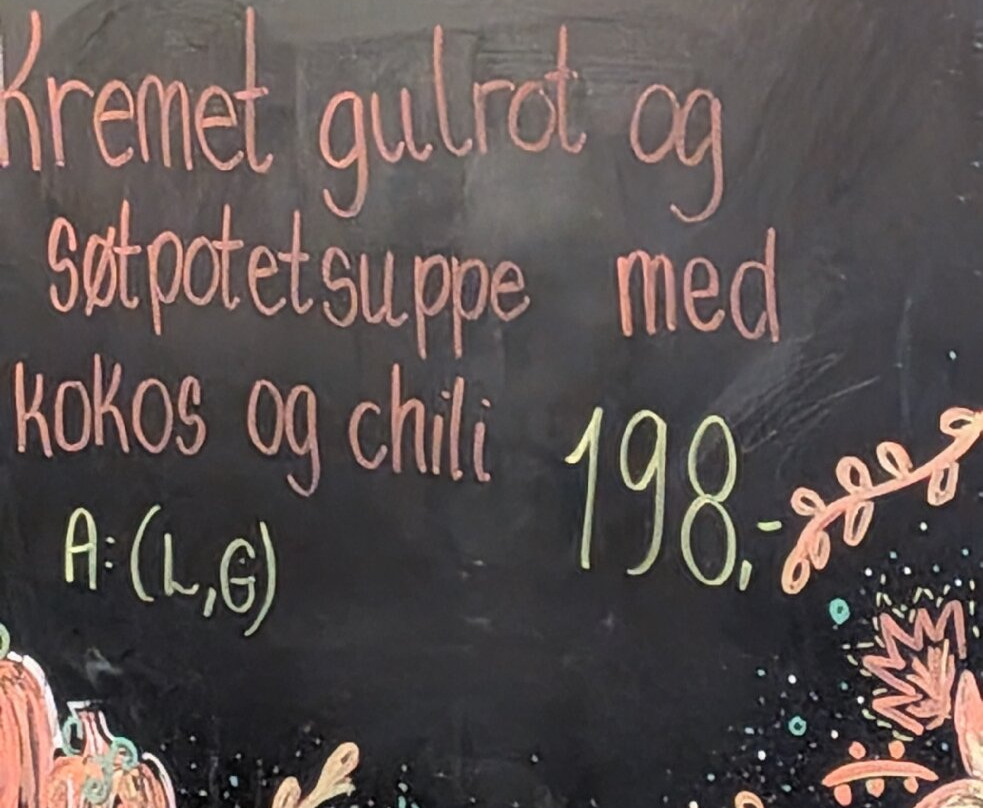 Kremet gulrot og
søtpotetsuppe med
kokos og chili
198,-
A: (L,G)